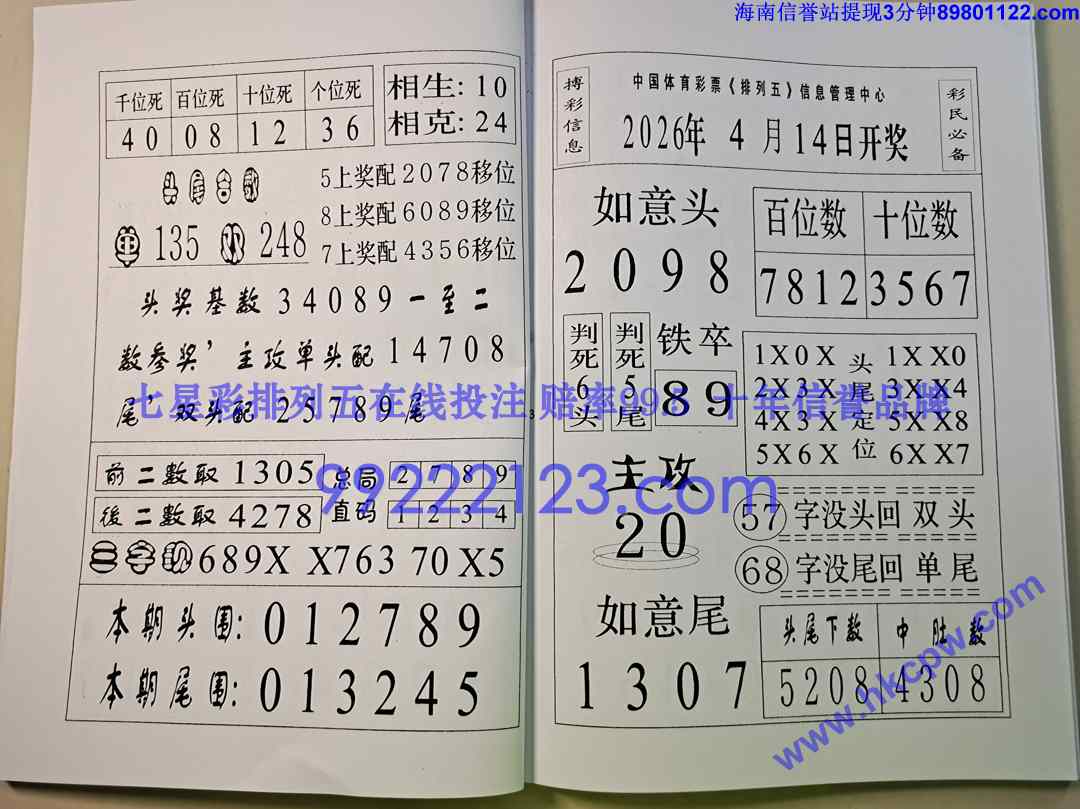 海南信誉站提现3分钟89801122.com
千位死 百位死 十位死 个位死
40 08 12 36
相生:10
相克:24
5上奖配2078移位
8上奖配6089移位
7上奖配4356移位
135 248
头奖基数34089一至二
数参奖,主攻单头配14708
尾,双头配25789尾
前二数取1305
後二数取4278
总局 2 7 8 9
直码 1 2 3 4
689X X763 70X5
本期头围:012789
本期尾围:013245
搏彩信息
中国体育彩票《排列五》信息管理中心
2026年4月14日开奖
彩民必备
如意头
2098
百位数 十位数
7812 3567
判死6头
判死5尾
铁卒
89
头尾定位
1X0X 1XX0
2X3X 3XX4
4X3X 5XX8
5X6X 6XX7
主攻
20
57字没头回双头
68字没尾回单尾
如意尾
1307
头尾下数 中肚数
5208 4308
3
七星彩排列五在线投注 赔率99.5 十年信誉品牌
99222123.com
www.hkcpw.com